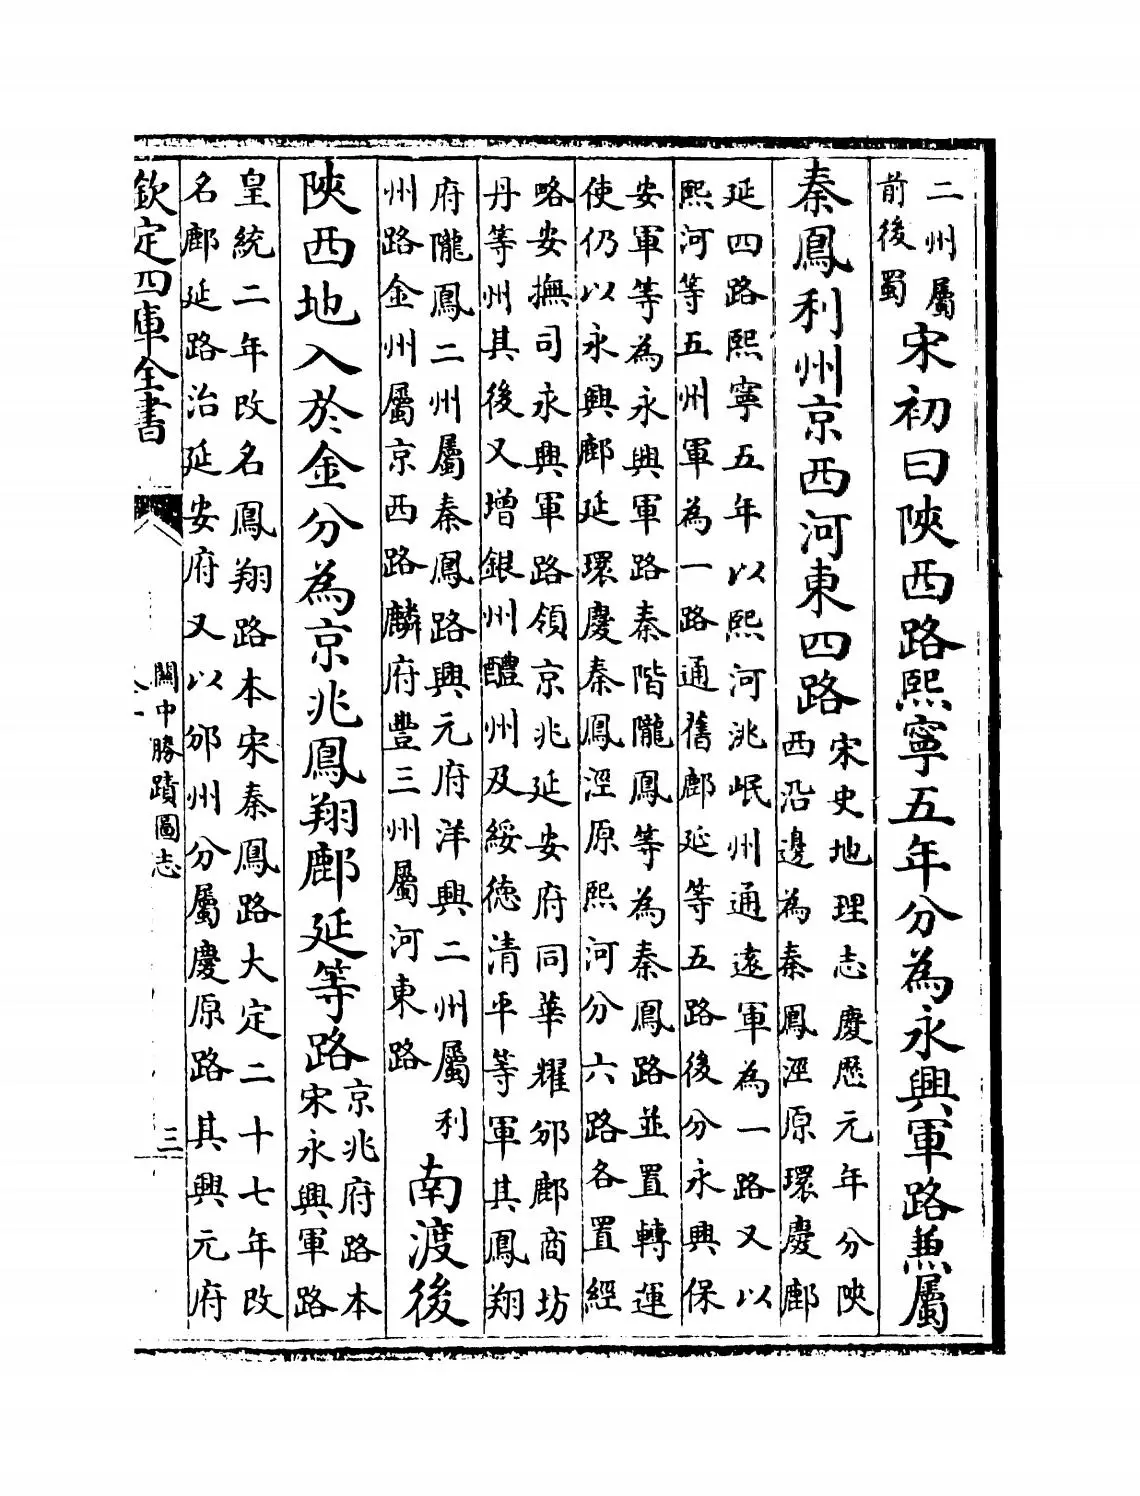 二州屬
前後蜀
宋初曰陜西路熙寧五年分為永興軍路兼屬
秦鳳利州京西河東四路
宋史地理志慶歴元年分陜
西沿邊為秦鳳涇原環慶鄜
延四路熙寧五年以熙河洮岷州通遠軍為一路又以
熙河等五州軍為一路通舊鄜延等五路後分永興保
安軍等為永興軍路秦階隴鳳等為秦鳳路並置轉運
使仍以永興鄜延環慶秦鳳涇原熙河分六路各置經
略安撫司永興軍路領京兆延安府同華耀邠鄜商坊
丹等州其後又增銀州醴州及綏德清平等軍其鳳翔
府隴鳳二州屬秦鳳路興元府洋興二州屬利
州路金州屬京西路麟府豐三州屬河東路
南渡後
陜西地入於金分為京兆鳳翔鄜延等路
京兆府路本
宋永興軍路
皇統二年改名鳳翔路本宋秦鳳路大定二十七年改
名鄜延路治延安府又以邠州分屬慶原路其興元府
欽定四庫全書
關中勝蹟圖志
三